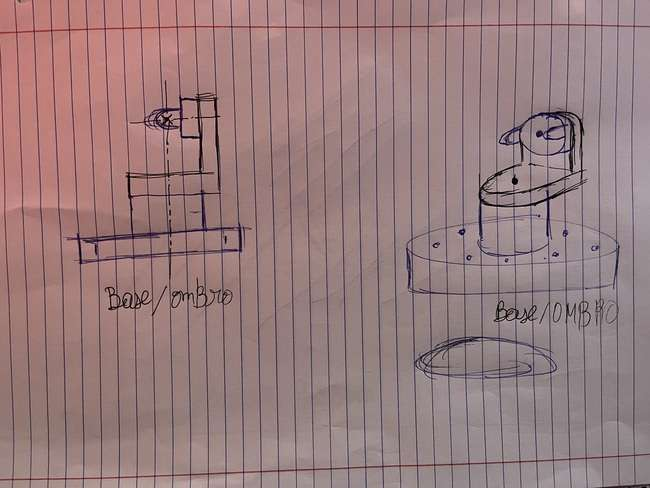 Base/omBro
Base/OMBRO